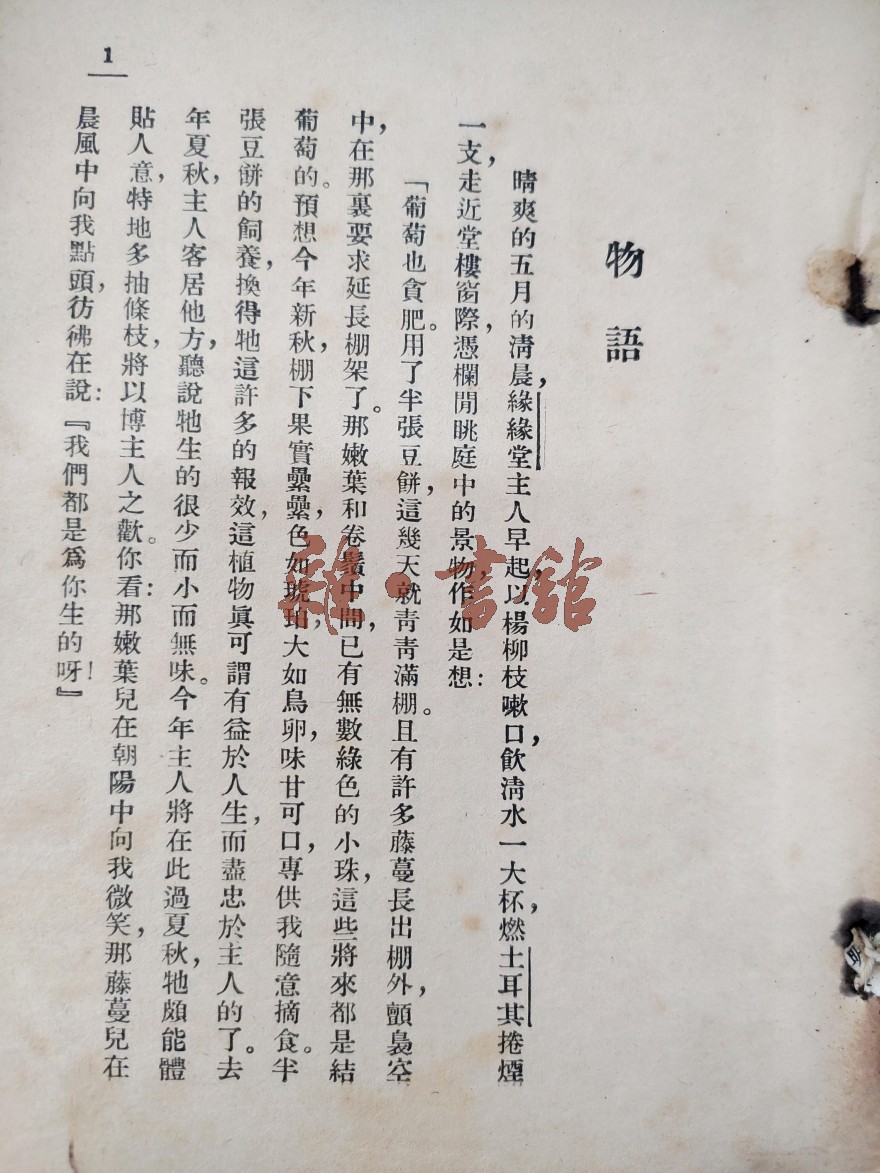 1
物語
晴爽的五月的淸晨，緣緣堂主人早起，以楊柳枝嗽口，飮淸水一大杯，燃土耳其捲煙
一支，走近堂樓窗際，憑欄閒眺庭中的景物，作如是想：
「葡萄也貪肥。用了半張豆餅，這幾天就靑靑滿棚。且有許多藤蔓長出棚外，顫裊空
中，在那裏要求延長棚架了。那嫩葉和卷鬚中間，已有無數綠色的小珠，這些將來都是結
葡萄的。預想今年新秋，棚下果實纍纍，色如琥珀，大如鳥卵，味甘可口，專供我隨意摘食。半
張豆餅的飼養，換得牠這許多的報效，這植物眞可謂有益於人生，而盡忠於主人的了。去
年夏秋，主人客居他方，聽說牠生的很少而小而無味。今年主人將在此過夏秋，牠頗能體
貼人意，特地多抽條枝，將以博主人之歡。你看：那嫩葉兒在朝陽中向我微笑，那藤蔓兒在
晨風中向我點頭，彷彿在說：『我們都是爲你生的呀！』
雜·書館